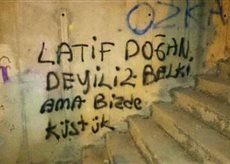 OZKA
LATİF DOĞAN
DEYİLİZ BELKİ
AMA BİZDE
KÜSTÜK